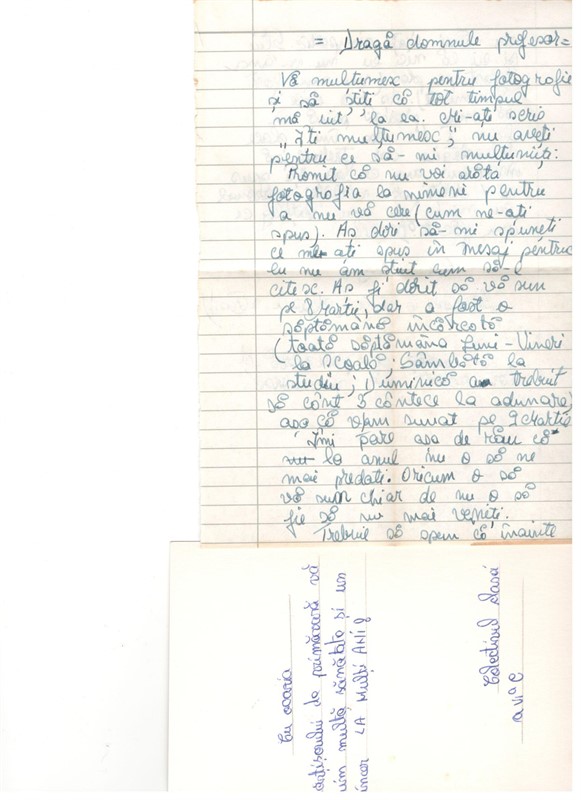 = Dragă domnule profesor =
Vă multumesc pentru fotografie
și să știti că tot timpul
mă uit la ea. Mi-ati scris
"Iti multumesc", nu aveti
pentru ce să-mi multumiti.
Promit că nu voi arăta
fotografia la nimeni pentru
a nu vă cere (cum ne-ati
spus). As dori să-mi spuneti
ce mi-ati spus în mesaj pentru
eu nu am stiut cum să-l
citesc. As fi dorit să vă sun
pe 8 Martie, dar a fost o
săptămână încărcată
(toată săptămâna Luni-Vineri
la Scoală; Sâmbătă la
studiu; Duminică am trebuit
să cânt 3 cântece la adunare)
asa că v-am sunat pe 9 Martie
Îmi pare asa de rău că
la anul nu o să ne
mai predati. Oricum o să
vă sun chiar de nu o să
fie să nu mai veniti.
Trebuie să spem că înainte
Cu ocazia
ărțișorului de primăvară vă
multă sănătate și un
sincer LA Mulți Ani!
Colectivul clasei
a VI-a C